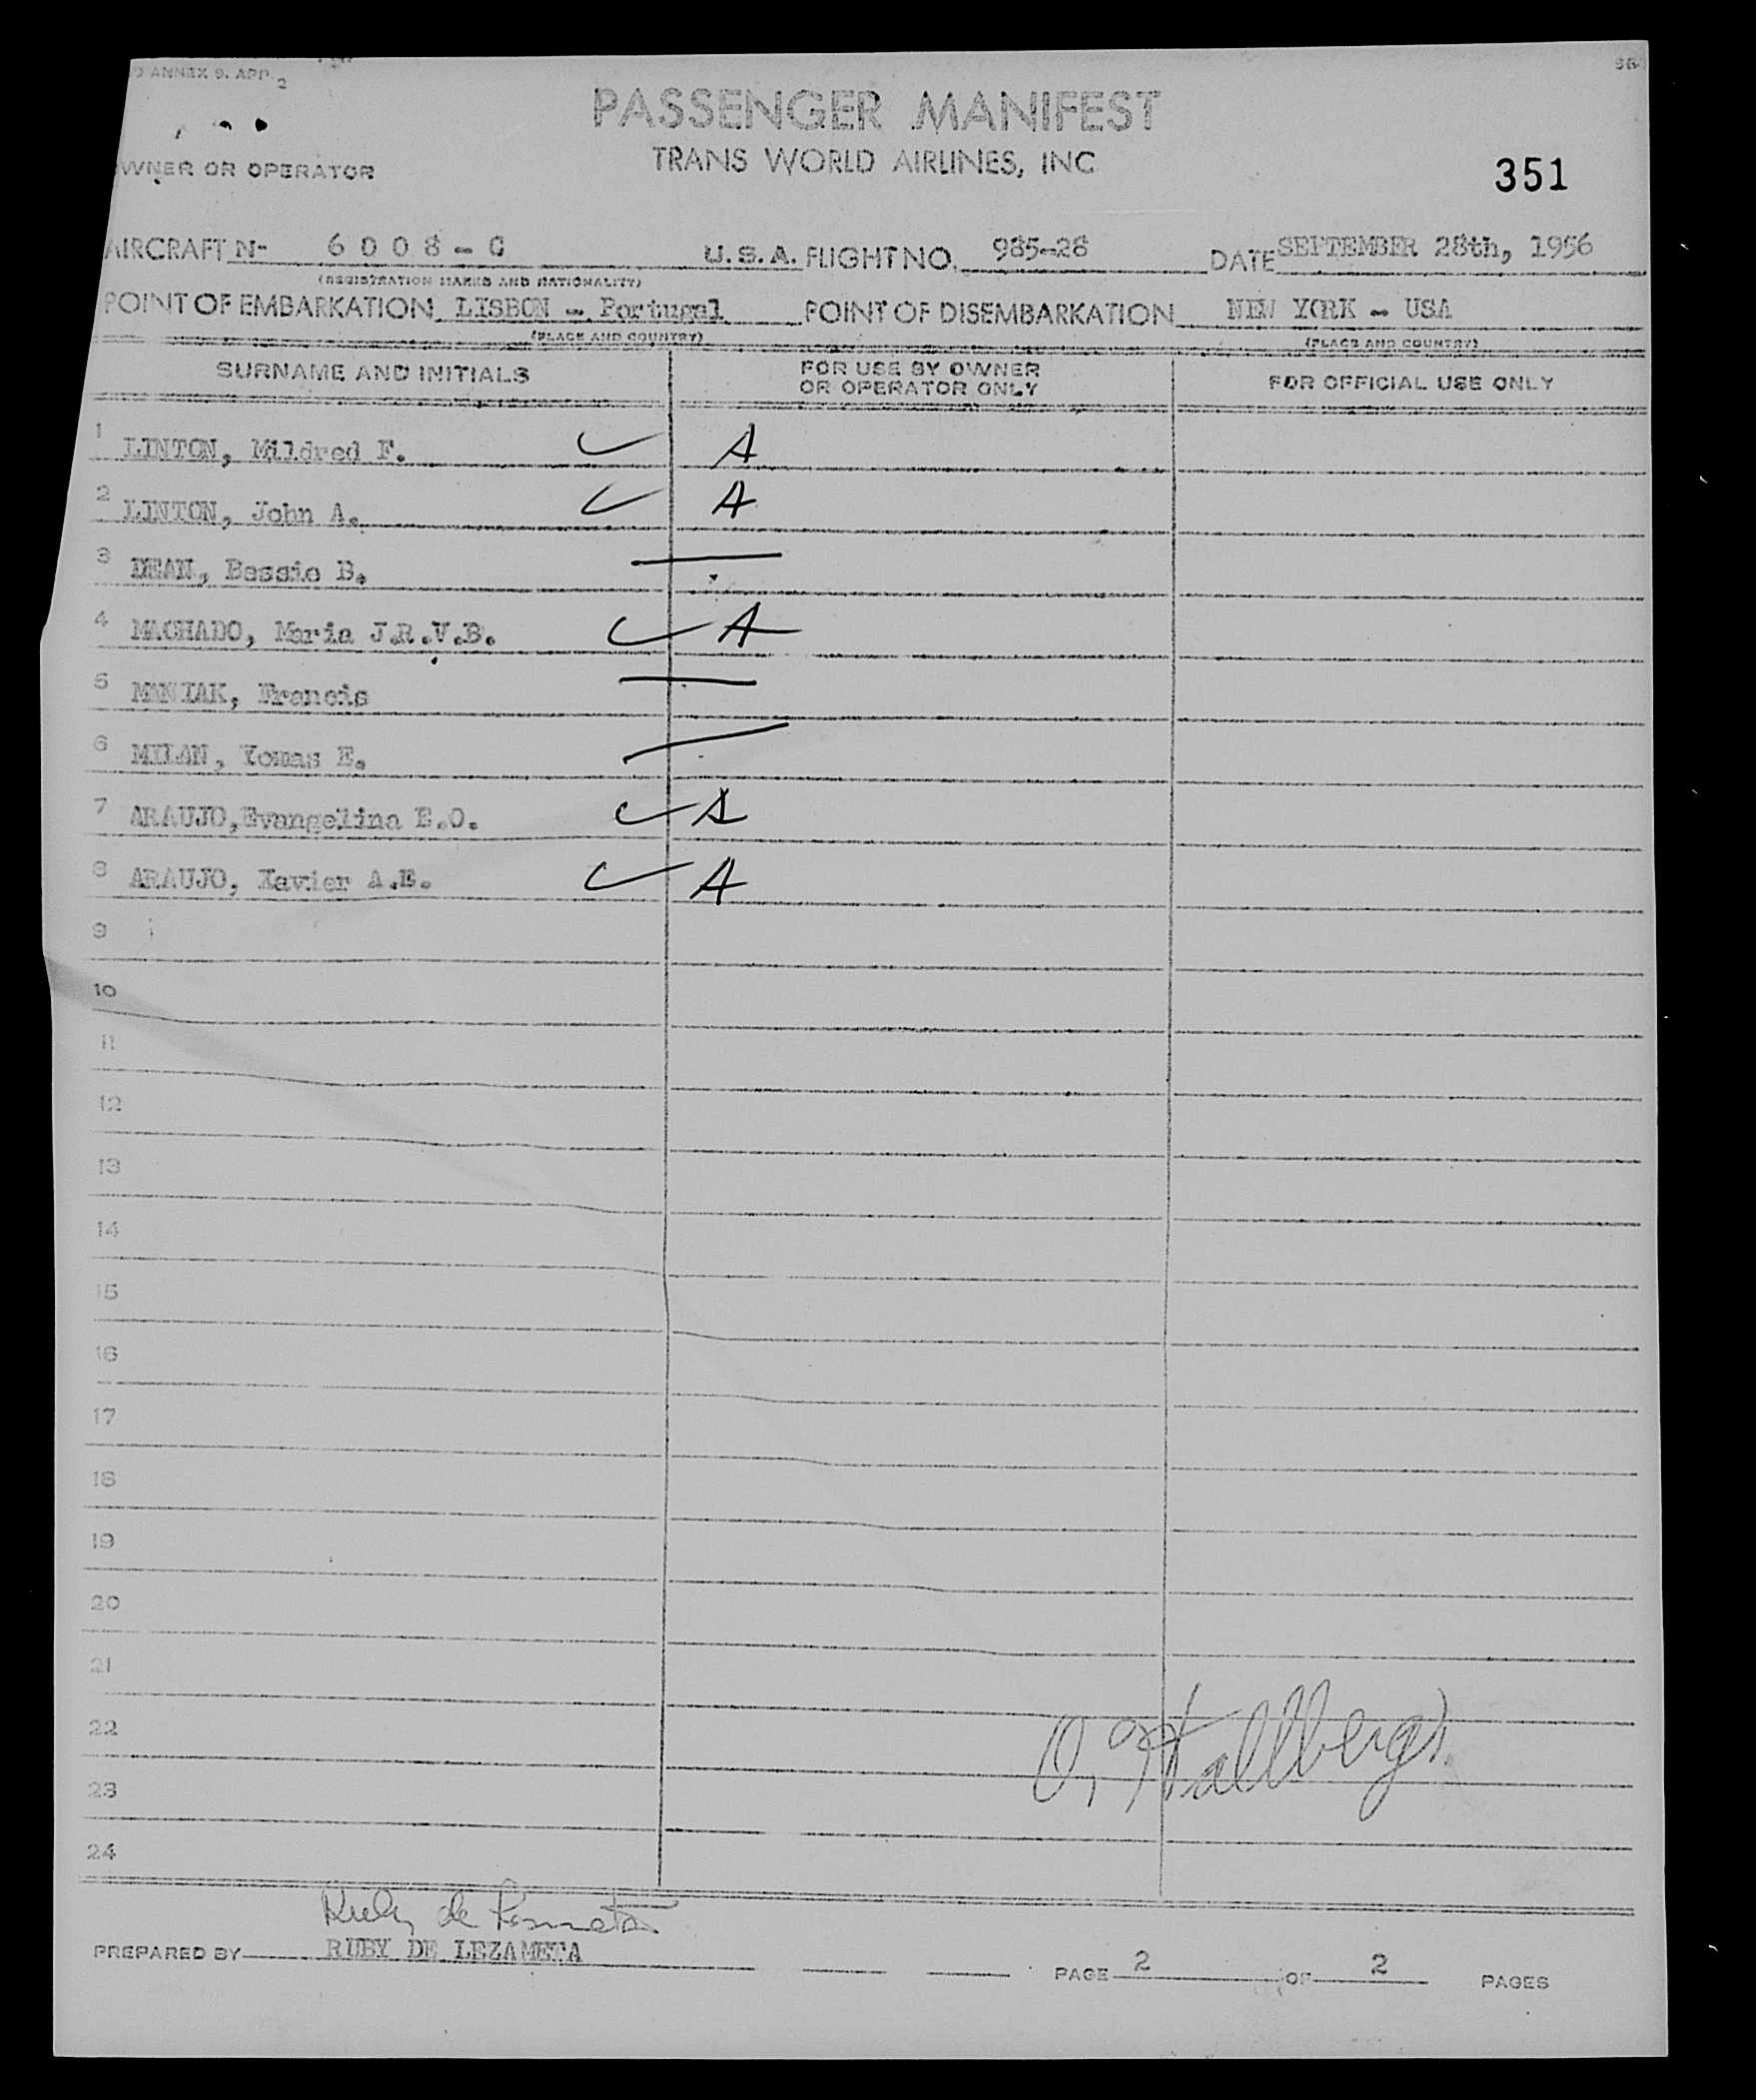 ANNEX 9. APP 2
PASSENGER MANIFEST
TRANS WORLD AIRLINES, INC
OWNER OR OPERATOR
351
AIRCRAFT N- 6 0 0 8 - C U.S.A. FLIGHT NO. 985-28 DATE SEPTEMBER 28th, 1956
(REGISTRATION MARKS AND NATIONALITY)
POINT OF EMBARKATION LISBON - Portugal POINT OF DISEMBARKATION NEW YORK - USA
(PLACE AND COUNTRY) (PLACE AND COUNTRY)
SURNAME AND INITIALS FOR USE BY OWNER OR OPERATOR ONLY FOR OFFICIAL USE ONLY
1 LINTON, Mildred F. A
2 LINTON, John A. A
3 DEAN, Bessie B.
4 MACHADO, Maria J.R.V.B. A
5 MANIAK, Francis
6 MILAN, Tomas E.
7 ARAUJO,Evangelina E.O. A
8 ARAUJO, Xavier A.E. A
9
10
11
12
13
14
15
16
17
18
19
20
21
22
23
24
PREPARED BY RUBY DE LEZAMETA PAGE 2 OF 2 PAGES